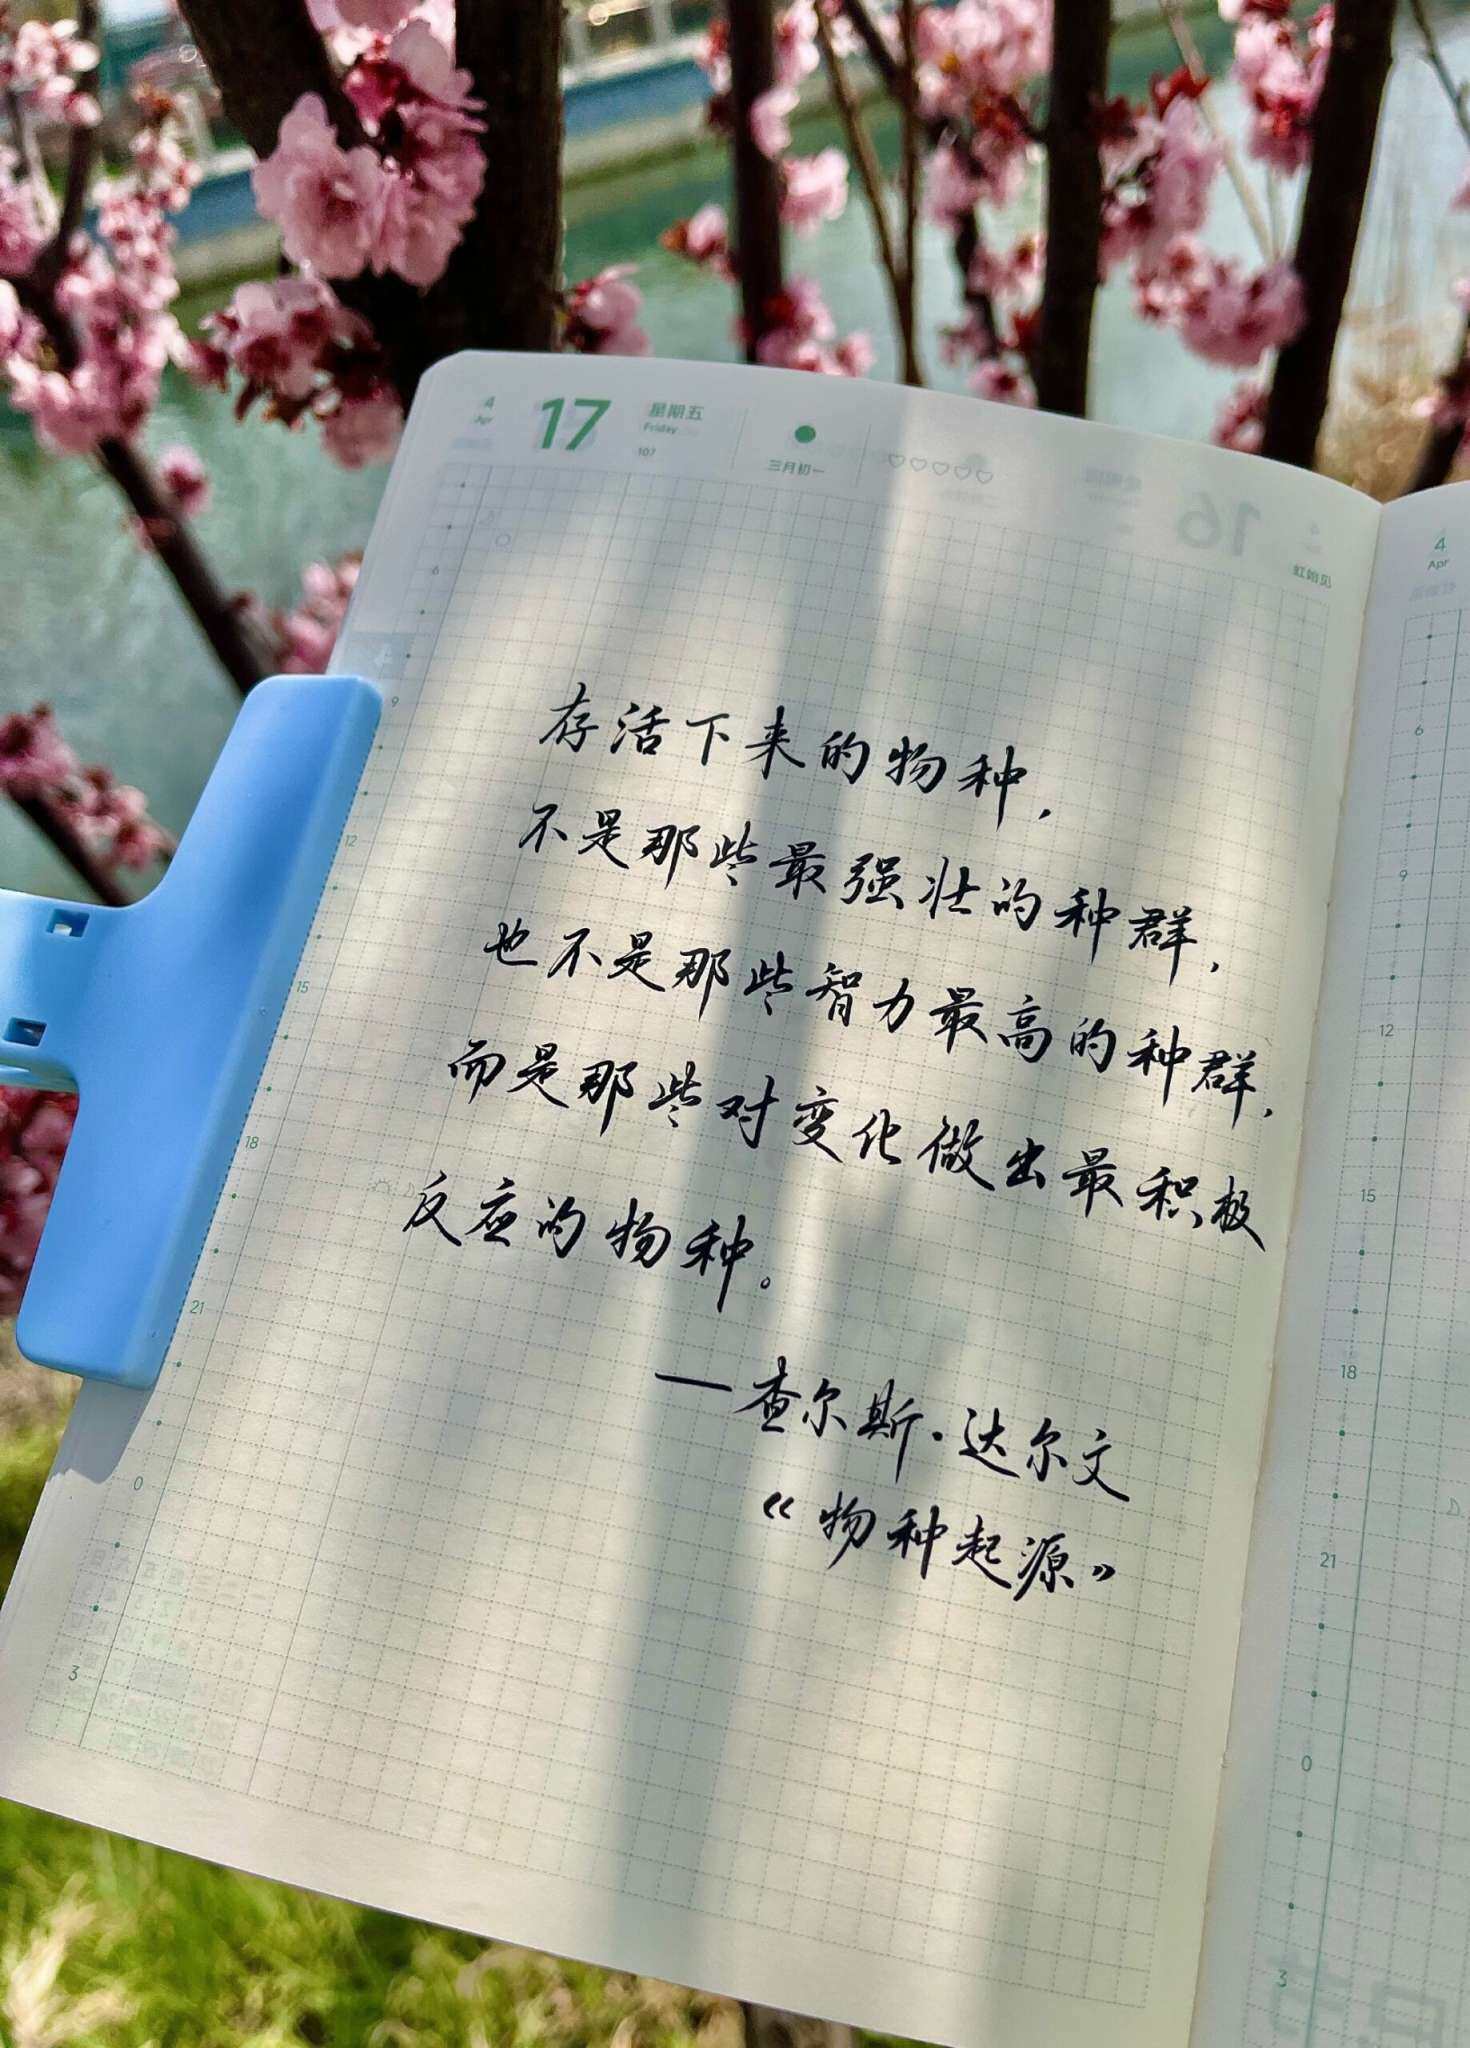 4 17 星期五
Apr Friday
107 三月初一
虹始见
6
9
12
15
18
21
0
3
存活下来的物种,
不是那些最强壮的种群,
也不是那些智力最高的种群,
而是那些对变化做出最积极
反应的物种。
—查尔斯·达尔文
《物种起源》
4
Apr
6
9
12
15
18
21
0
3